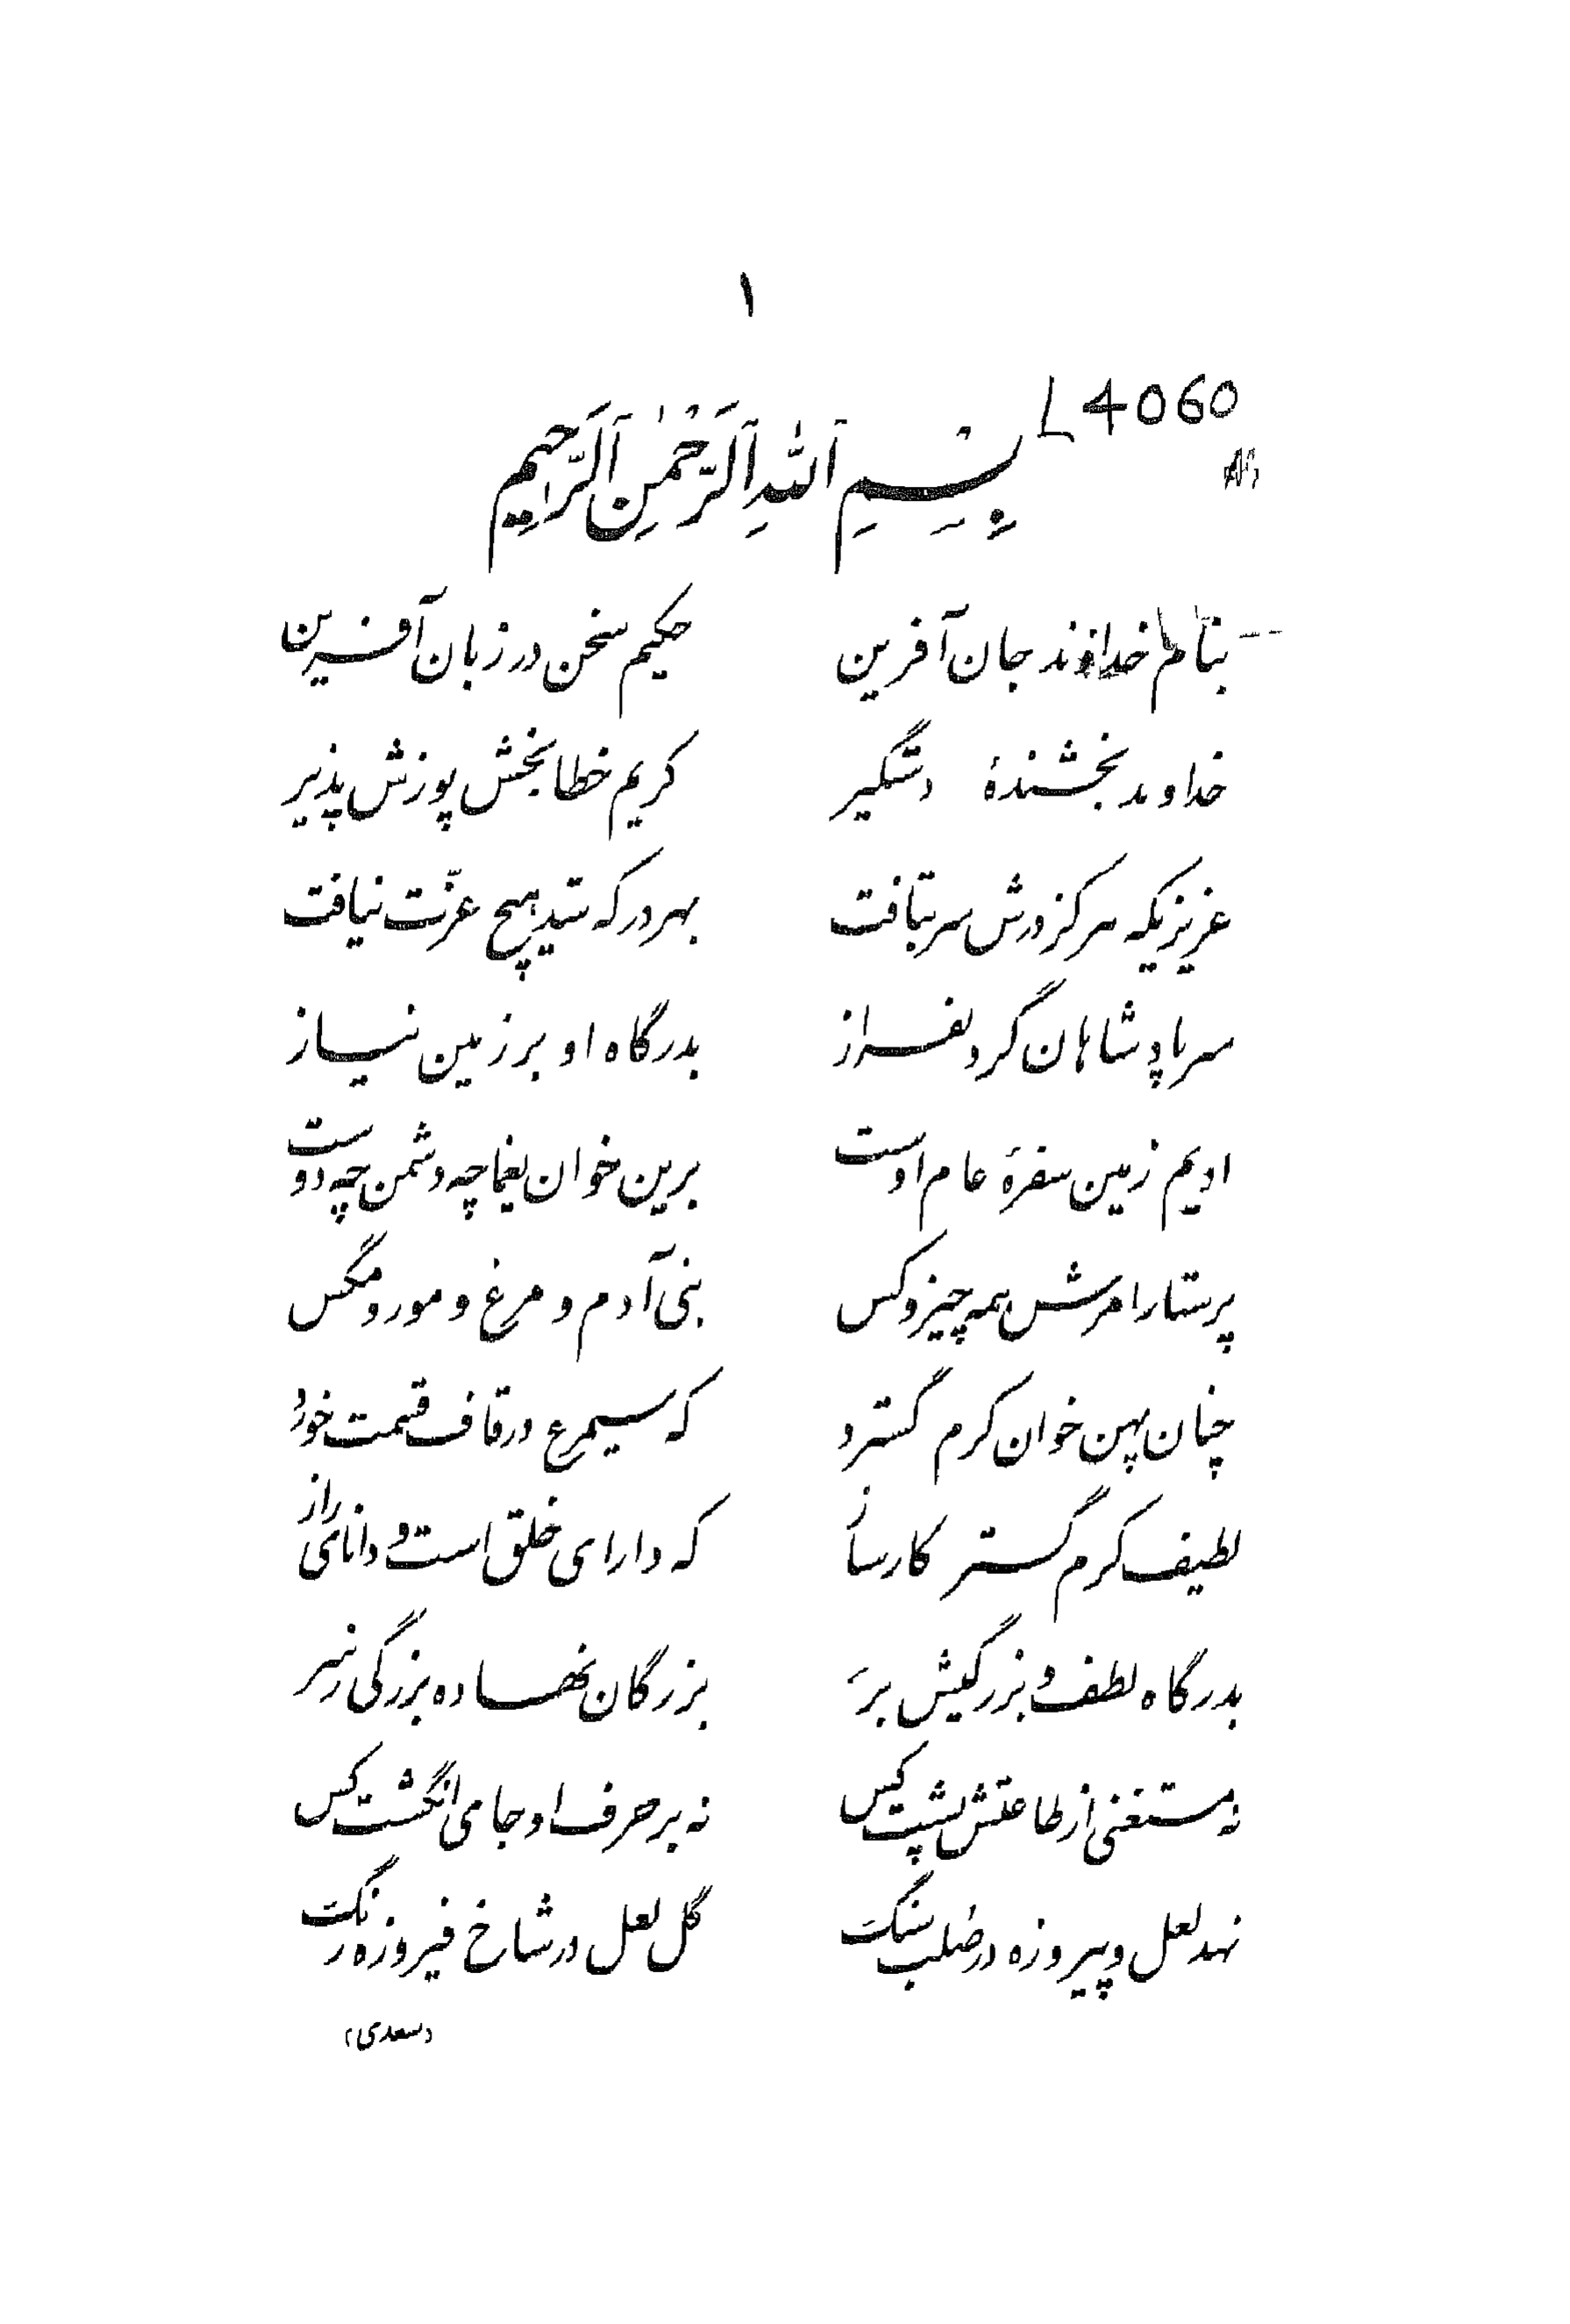 ١
L 4060
بِسْمِ اللهِ الرَّحْمٰنِ الرَّحِیمِ
بنام خداوند جان آفرین حکیم سخن در زبان آفرین
خداوند بخشندهٔ دستگیر کریم خطا بخش پوزش پذیر
عزیزیکه هرکز درش سر بتافت بهر در که شد هیچ عزّت نیافت
سر پادشاهان گردنفراز بدرگاه او بر زمین نیاز
ادیم زمین سفرهٔ عام اوست برین خوان یغما چه دشمن چه دوست
پرستار امرش همه چیز و کس بنی آدم و مرغ و مور و مگس
چنان پهن خوان کرم گسترد که سیمرغ در قاف قسمت خورد
لطیف کرم گستر کارساز که دارای خلق است و دانای راز
بدرگاه لطف و بزرگیش بر بزرگان نهاده بزرگی ز سر
نه مستغنی از طاعتش پشت کس نه بر حرف او جای انگشت کس
نهد لعل و پیروزه در صلب سنگ گل لعل در شاخ فیروزه رنگ
(سعدی)